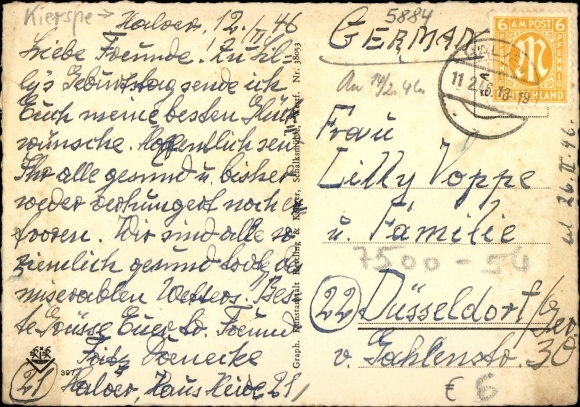 Kierspe → 
Halver, 12./II. 46
Liebe Freunde. Zu Lil-
ly's Geburtstag sende ich
Euch meine besten Glück
wünsche. Hoffentlich seid
Ihr alle gesund u. bisher
weder verhungert noch er
froren. Wir sind alle so
ziemlich gesund trotz des
miserablen Wetters. Bes-
te Grüsse Euer tr. Freund
Fritz
(21) Halver, Haus Heide 25
307
Graph. Kunstanstalt
Schalksmühle, Westf. Nr. 38053
5884
GERMANY
6 AM POST 6
PFENNIG
DEUTSCHLAND
11.2.46.18-19
An 14/2. 46
Frau
Lilly Voppe
u. Familie
7500-54
(22) Düsseldorf/
v. Gahlenstr. 30
€ 6
26.II.46.